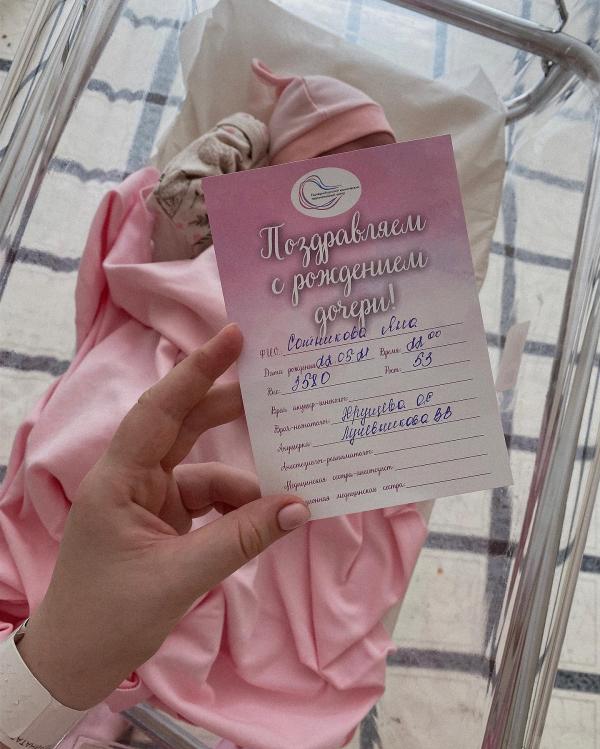 Поздравляем
с рождением
дочери!
Ф.И.О. Сотникова Яна
Дата рождения Время
Вес: 3580 Рост: 53
Врач акушер-гинеколог:
Врач-неонатолог: Хрущева О.Е
Акушерка: Лучевникова В В
Анестезиолог-реаниматолог:
Медицинская сестра-анестезист:
медицинская сестра: